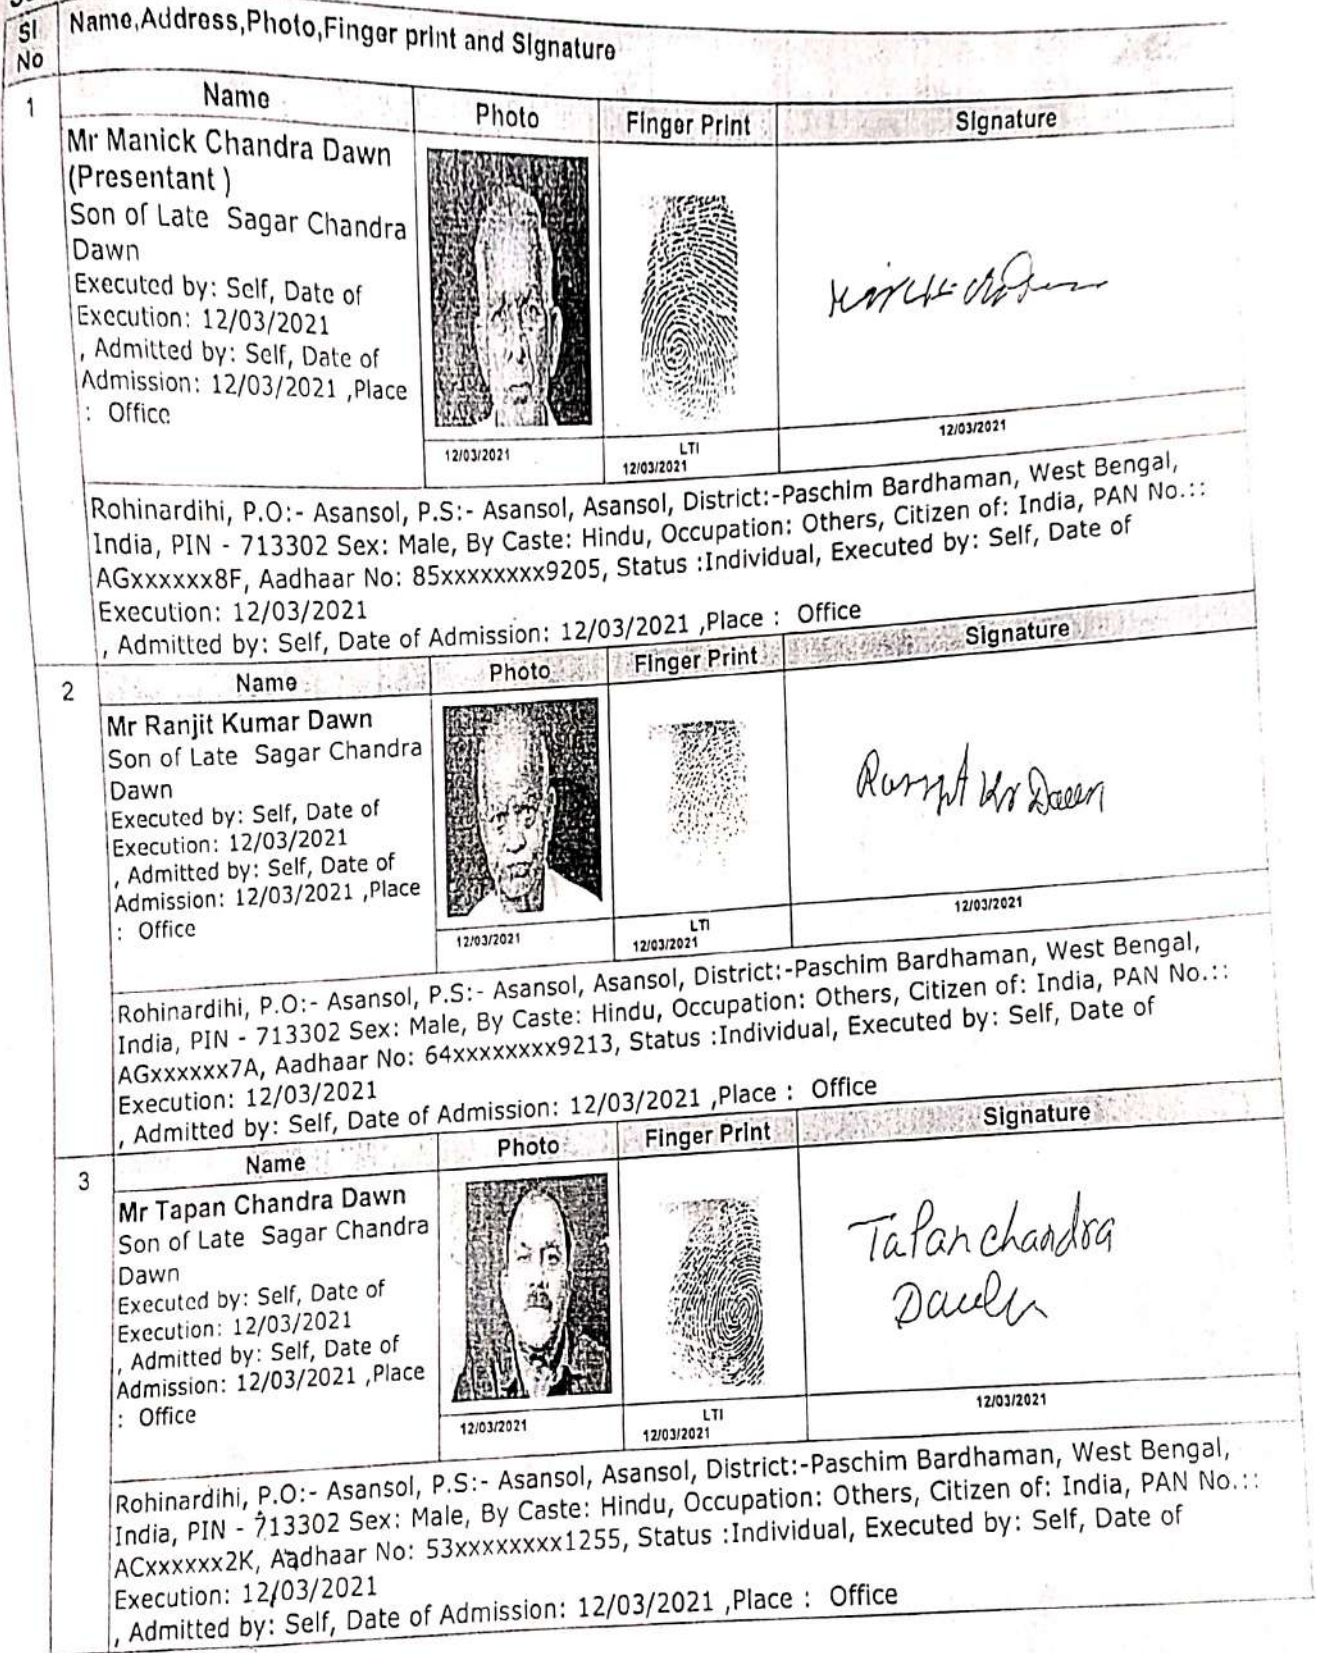 Sl
No
Name,Address,Photo,Finger print and Signature
1
Name
Photo
Finger Print
Signature
Mr Manick Chandra Dawn
(Presentant )
Son of Late Sagar Chandra
Dawn
Executed by: Self, Date of
Execution: 12/03/2021
, Admitted by: Self, Date of
Admission: 12/03/2021 ,Place
: Office
12/03/2021
LTI
12/03/2021
12/03/2021
Rohinardihi, P.O:- Asansol, P.S:- Asansol, Asansol, District:-Paschim Bardhaman, West Bengal,
India, PIN - 713302 Sex: Male, By Caste: Hindu, Occupation: Others, Citizen of: India, PAN No.::
AGxxxxxx8F, Aadhaar No: 85xxxxxxxx9205, Status :Individual, Executed by: Self, Date of
Execution: 12/03/2021
, Admitted by: Self, Date of Admission: 12/03/2021 ,Place : Office
2
Name
Photo
Finger Print
Signature
Mr Ranjit Kumar Dawn
Son of Late Sagar Chandra
Dawn
Executed by: Self, Date of
Execution: 12/03/2021
, Admitted by: Self, Date of
Admission: 12/03/2021 ,Place
: Office
Ranjit Kr Dawn
12/03/2021
LTI
12/03/2021
12/03/2021
Rohinardihi, P.O:- Asansol, P.S:- Asansol, Asansol, District:-Paschim Bardhaman, West Bengal,
India, PIN - 713302 Sex: Male, By Caste: Hindu, Occupation: Others, Citizen of: India, PAN No.::
AGxxxxxx7A, Aadhaar No: 64xxxxxxxx9213, Status :Individual, Executed by: Self, Date of
Execution: 12/03/2021
, Admitted by: Self, Date of Admission: 12/03/2021 ,Place : Office
3
Name
Photo
Finger Print
Signature
Mr Tapan Chandra Dawn
Son of Late Sagar Chandra
Dawn
Executed by: Self, Date of
Execution: 12/03/2021
, Admitted by: Self, Date of
Admission: 12/03/2021 ,Place
: Office
Tapan chandra
12/03/2021
LTI
12/03/2021
12/03/2021
Rohinardihi, P.O:- Asansol, P.S:- Asansol, Asansol, District:-Paschim Bardhaman, West Bengal,
India, PIN - 713302 Sex: Male, By Caste: Hindu, Occupation: Others, Citizen of: India, PAN No.::
ACxxxxxx2K, Aadhaar No: 53xxxxxxxx1255, Status :Individual, Executed by: Self, Date of
Execution: 12/03/2021
, Admitted by: Self, Date of Admission: 12/03/2021 ,Place : Office